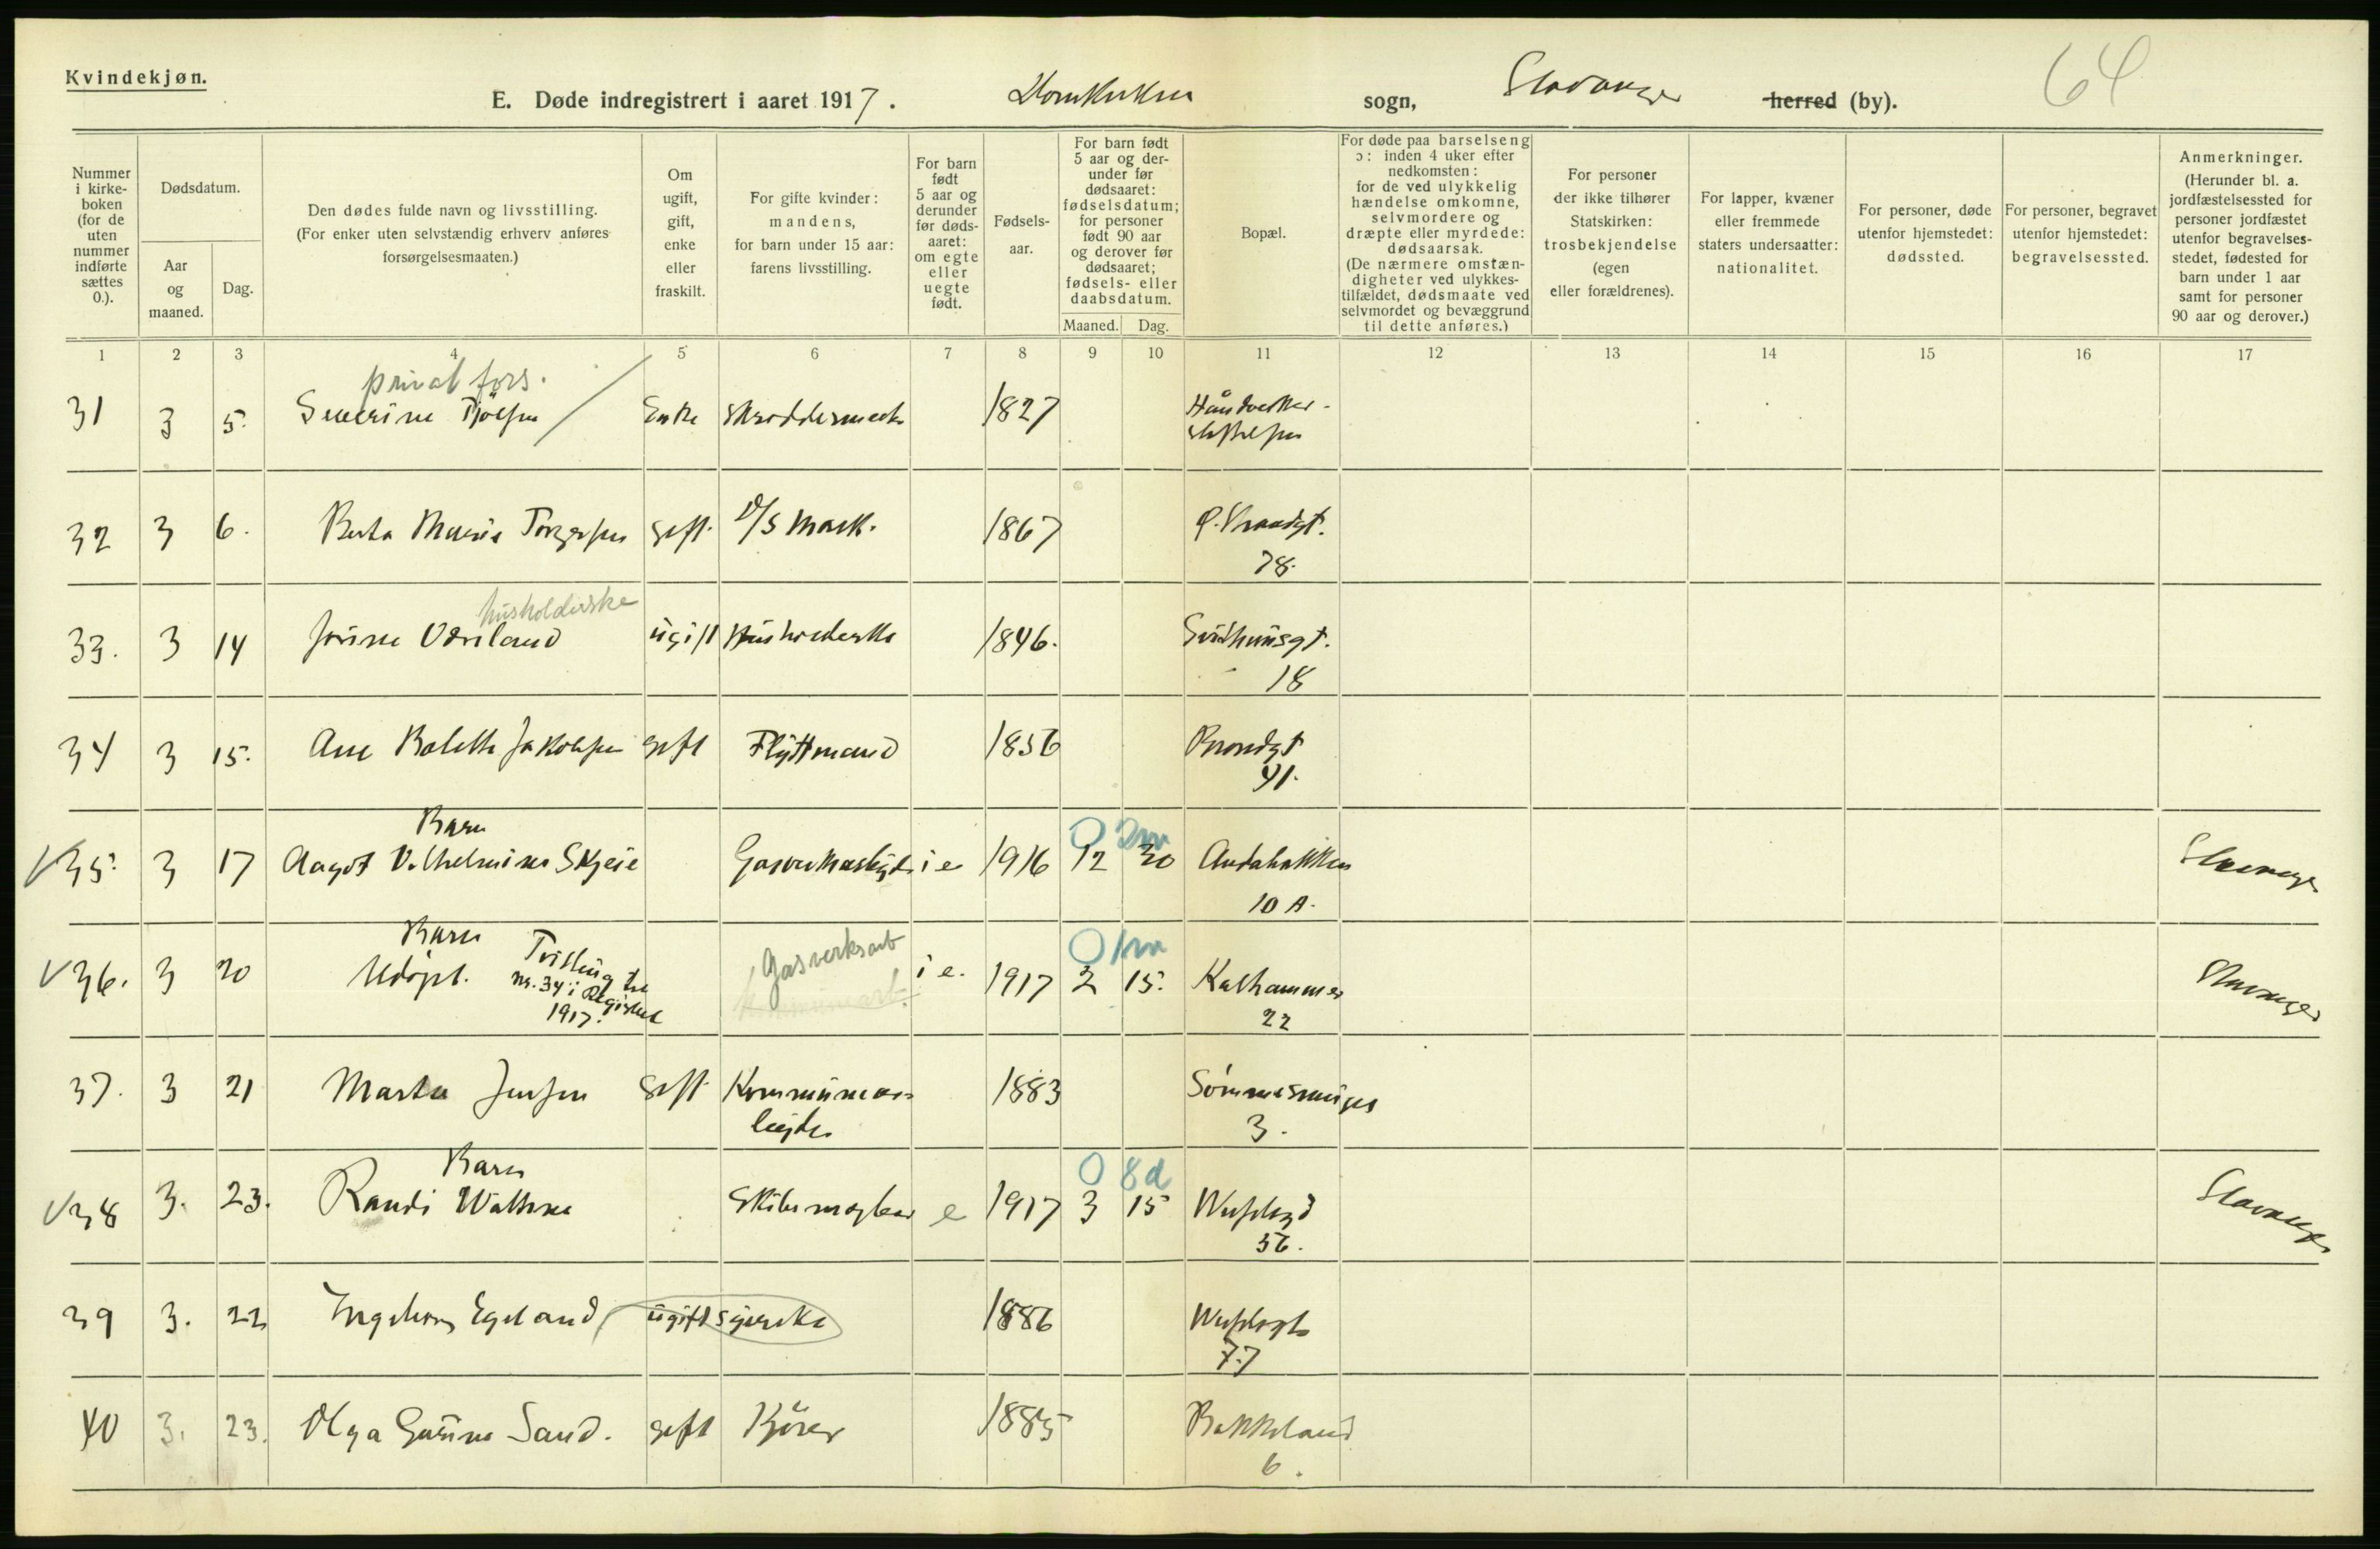 Kvindekjøn.
E. Døde indregistrert i aaret 1917. Domkirken sogn, Stavanger herred (by). 64
Nummer i kirke-boken (for de uten nummer indførte sættes 0.).
Dødsdatum.
Aar og maaned.
Dag.
Den dødes fulde navn og livsstilling.
(For enker uten selvstændig erhverv anføres forsørgelsesmaaten.)
Om ugift, gift, enke eller fraskilt.
For gifte kvinder: mandens, for barn under 15 aar: farens livsstilling.
For barn født 5 aar og derunder før døds-aaret: om egte eller uegte født.
Fødsels-aar.
For barn født 5 aar og der-under før dødsaaret: fødselsdatum; for personer født 90 aar og derover før dødsaaret; fødsels- eller daabsdatum.
Maaned. Dag.
Bopæl.
For døde paa barselseng ɔ: inden 4 uker efter nedkomsten: for de ved ulykkelig hændelse omkomne, selvmordere og dræpte eller myrdede: dødsaarsak. (De nærmere omstæn-digheter ved ulykkes-tilfældet, dødsmaate ved selvmordet og bevæggrund til dette anføres.)
For personer der ikke tilhører Statskirken: trosbekjendelse (egen eller forældrenes).
For lapper, kvæner eller fremmede staters undersaatter: nationalitet.
For personer, døde utenfor hjemstedet: dødssted.
For personer, begravet utenfor hjemstedet: begravelsessted.
Anmerkninger. (Herunder bl. a. jordfæstelsessted for personer jordfæstet utenfor begravelses-stedet, fødested for barn under 1 aar samt for personer 90 aar og derover.)
1 2 3 4 5 6 7 8 9 10 11 12 13 14 15 16 17
privat fors.
31 3 5. Severine Enke 1827
32 3 6. Berta Marie Torgersen gift 1867
78.
husholderske
33. 3 14 ugift Husholderske 1846.
18
34 3 15. Ane Bolette Jakobsen gift Flyttmand 1856
41.
Barn 0 2m
35. 3 17 Aagot Vilhelmine Skjeie i e 1916 12 30 Stavanger
10 A.
Barn Tvilling til Gasverksarb 0 1m
36. 3 20 Udøpt. nr. 34 i Registret i e. 1917 2 15. Kalhammer Stavanger
1917. 22
37. 3 21 Marta Jensen gift Kommunear= 1883
beider 3.
Barn 0 8d
38 3. 23. Randi e 1917 3 15 Stavanger
56.
39 3. 22 Ingeborg Egeland ugift syerske 1886
77
40 3. 23. Olga Gurine Sand. gift Kjører 1885 Bakkeland
6.